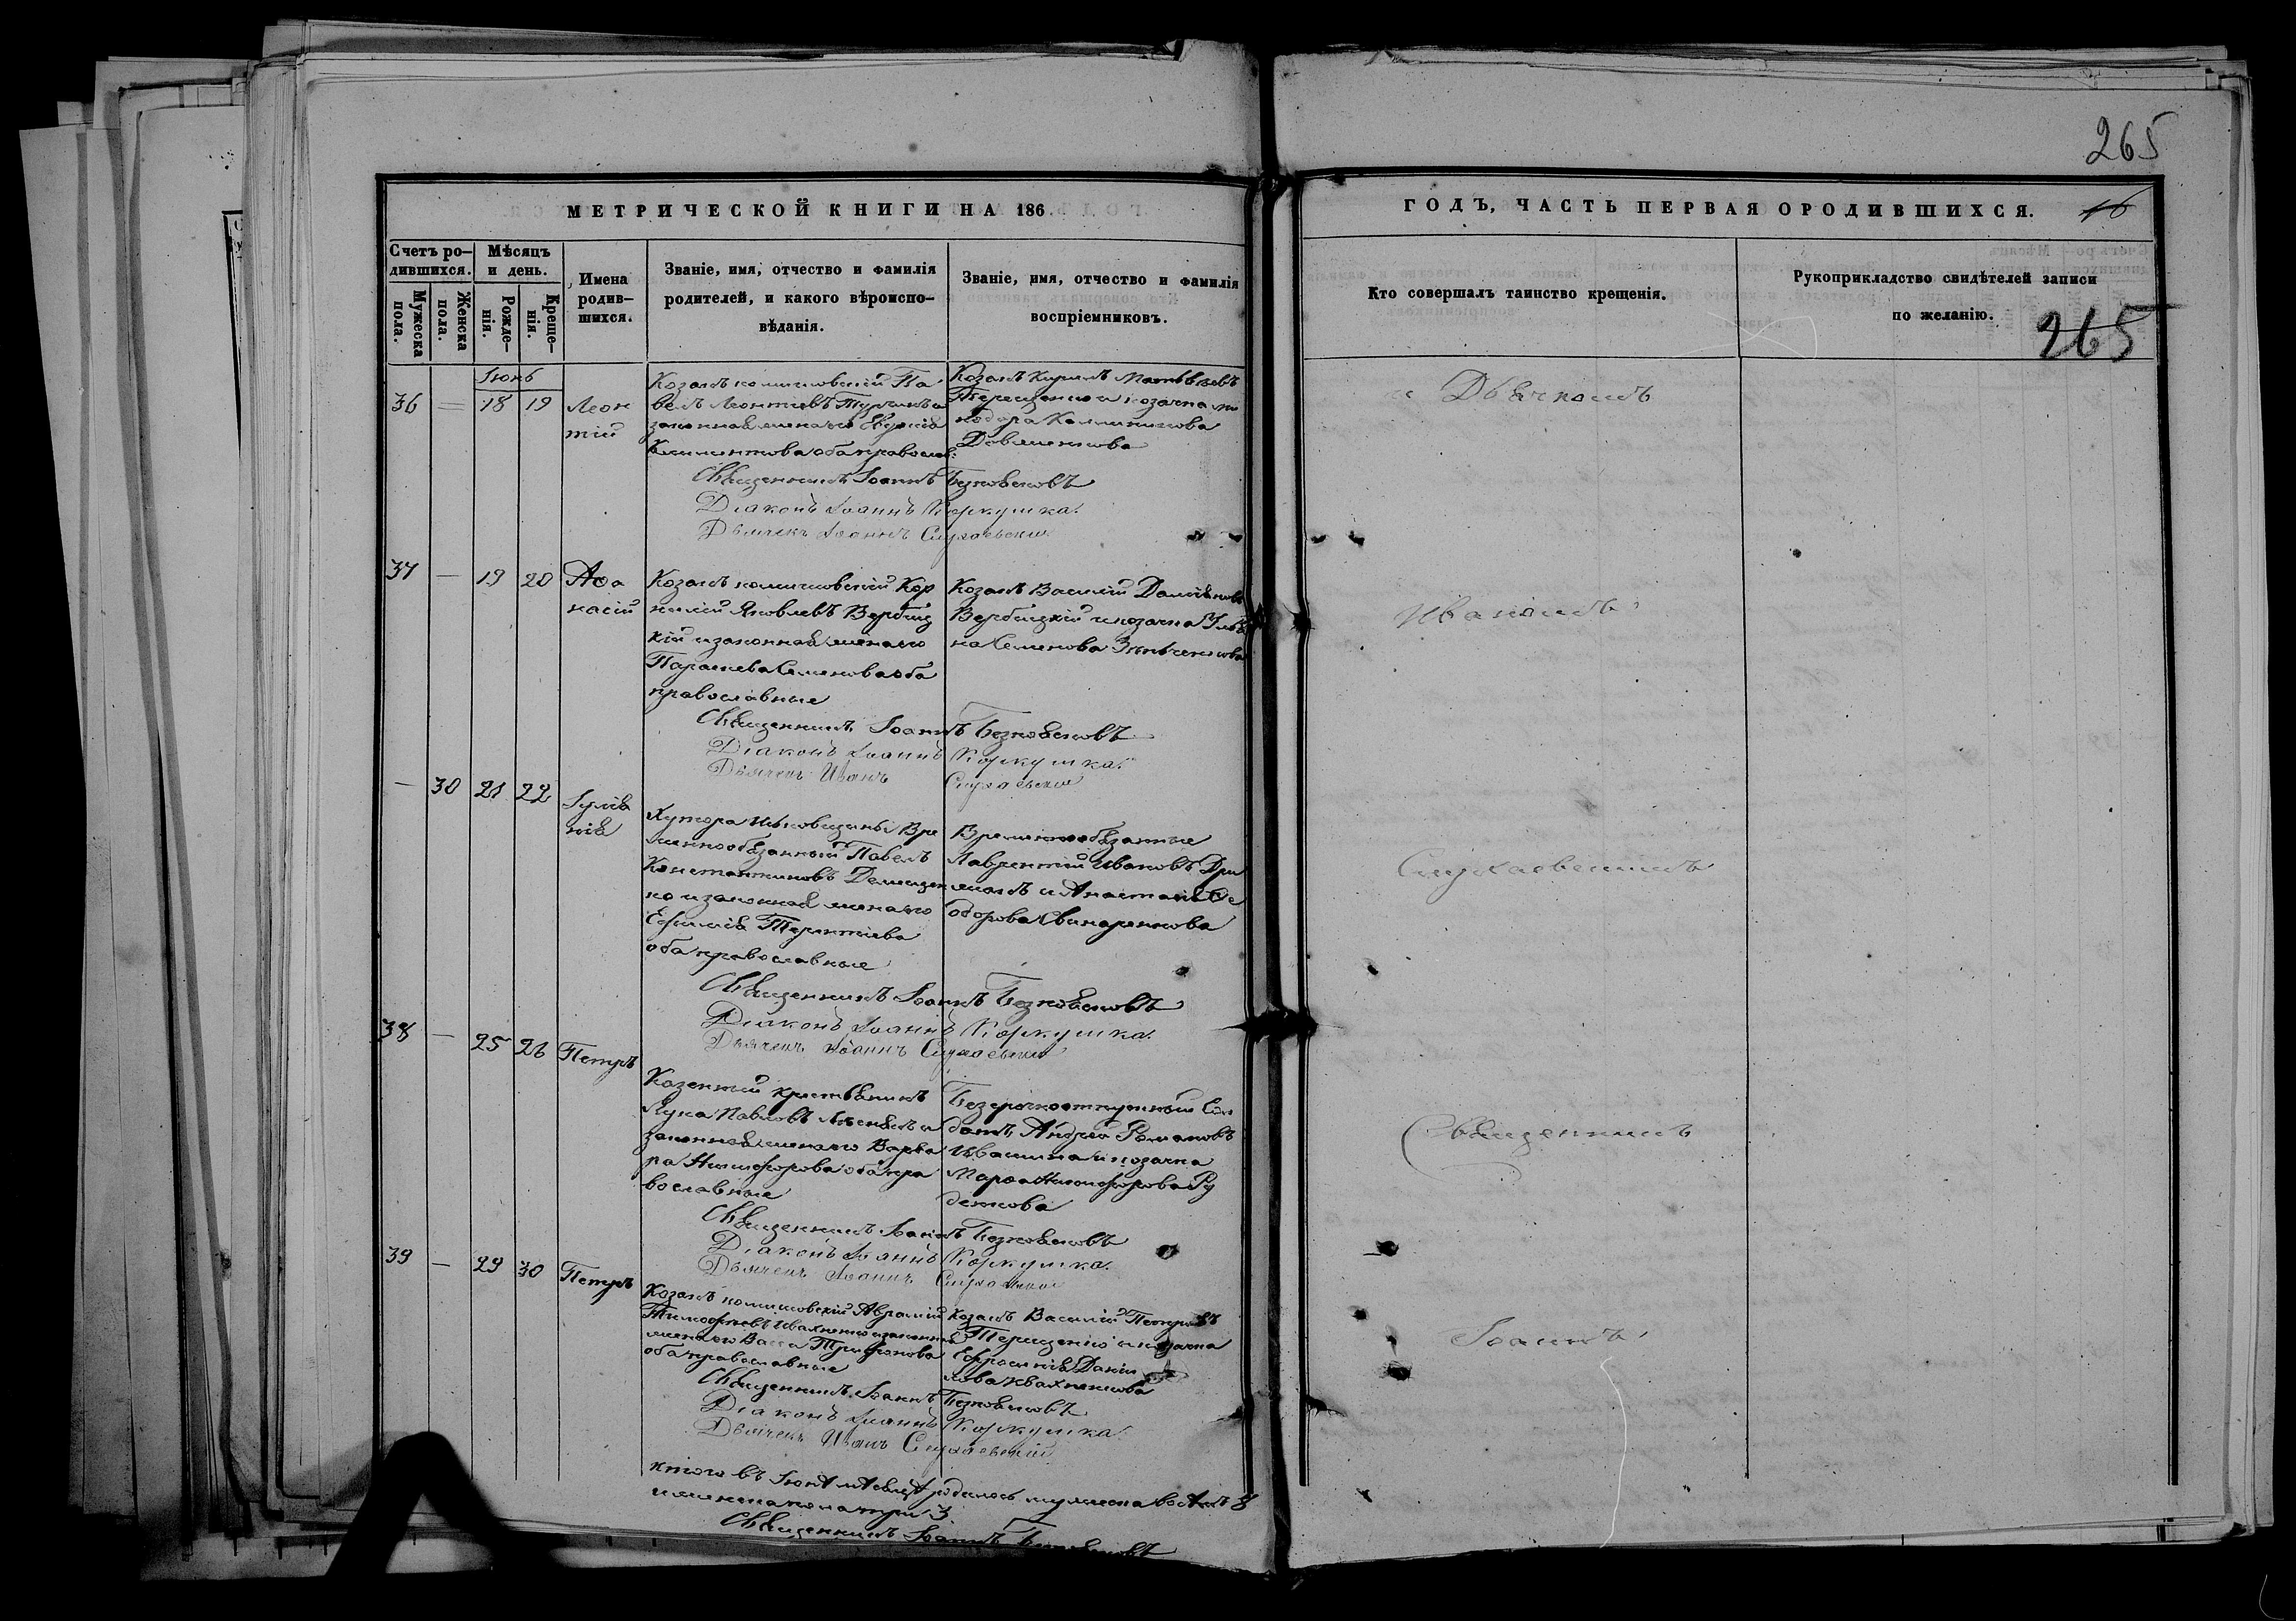 265
МЕТРИЧЕСКОЙ КНИГИ НА 186
ГОДЪ, ЧАСТЬ ПЕРВАЯ О РОДИВШИХСЯ.
16
Счетъ ро-
дившихся.
Мужеска
пола.
Женска
пола.
Мѣсяцъ
и день.
Рожде-
нія.
Креще-
нія.
Имена
родив-
шихся.
Званіе, имя, отчество и фамилія
родителей, и какого вѣроиспо-
вѣданія.
Званіе, имя, отчество и фамилія
воспріемниковъ.
Кто совершалъ таинство крещенія.
Рукоприкладство свидѣтелей записи
по желанію.
265
Іюнь
36 = 18 19
Леон
тій
Козакъ комишовскій Па-
велъ Леонтіевъ
законная жена его
Климентова оба православ:
Козакъ Кирилъ Матвѣевъ
Терещенко и козачка
Калиникова
и Дьячкомъ
Священникъ Іоаннъ
Діаконъ Іоаннъ Коркушка.
Дьячекъ Іоаннъ
37 — 19 20
Аѳа
насій
Козакъ комишовскій Кор
нилій Яковлевъ Вербиц
кій и законная жена его
Параскева Семенова оба
православные
Козакъ Василій Даміановъ
Вербицкій и козачка Улья
на Семенова
Иваномъ
Священникъ Іоаннъ
Діаконъ Іоаннъ Коркушка.
Дьячекъ Иванъ
— 30 21 22
Іуліа
нія
Хутора Вре
меннообязанный Павелъ
Константиновъ Демиден
ко и законная жена его
Ефимія Терентіева
оба православные
Временнообязанные
Лаврентій Ивановъ
и Анастасія Ѳе
одорова Свинаренкова
Священникъ Іоаннъ
Діаконъ Іоаннъ Коркушка.
Дьячекъ Іоаннъ
38 — 25 26
Петръ
Казенный крестьянинъ
Лука Павловъ и
законная жена его Варва
ра Никифорова оба пра
вославные
Безсрочноотпускной Сол
датъ Андрей Романовъ
Ивашина и козачка
Марѳа Никифорова Ру
денкова
Священникъ
Священникъ Іоаннъ
Діаконъ Іоаннъ Коркушка.
Дьячекъ Іоаннъ
39 — 29 30
Петръ
Козакъ комишовскій Аврамій
Тимофеевъ Ивахненко и законная
жена его Васса Трифонова
оба православные
Козакъ Василій Петровъ
Терещенко и козачка
Ефросинія Даніи
лова Ивахненкова
Іоаннъ
Священникъ Іоаннъ
Діаконъ Іоаннъ Коркушка.
Дьячекъ Иванъ
Итого въ Іюнѣ мѣсяцѣ родилось мужеска восемь 8
и женска пола три 3
Священникъ Іоаннъ